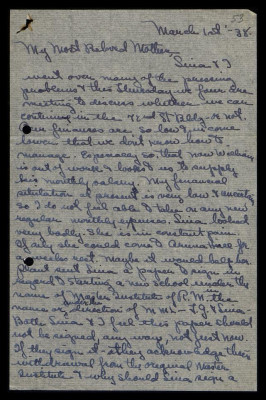 53
March 1st - 38.
My Most Beloved Mother,
Sina & I
went over many of the pressing
problems & this Thursday we four are
meeting to discuss whether we can
continue in the 72nd St Bldg. or not.
Our finances are so low & income
lower that we don't know how to
manage. Especially so, that now
is out of work & looks to us to supply
his monthly salary. My financial
situation at present is very low &
so I do not feel able to take on any new
regular monthly expenses. Sina looked
very badly. She is in constant pain.
If only she could come to for
a weeks rest. Maybe it would help her
sent Sina a paper to sign in
regard to starting a new school under the
name of Master Institute of R. M. the
name or direction of Mme - & Sina -
Both Sina & I feel this paper should
not be signed any way, not just now.
If they sign it - they acknowledge their
withdrawal from the original Master
Institute & why should Sina sign a